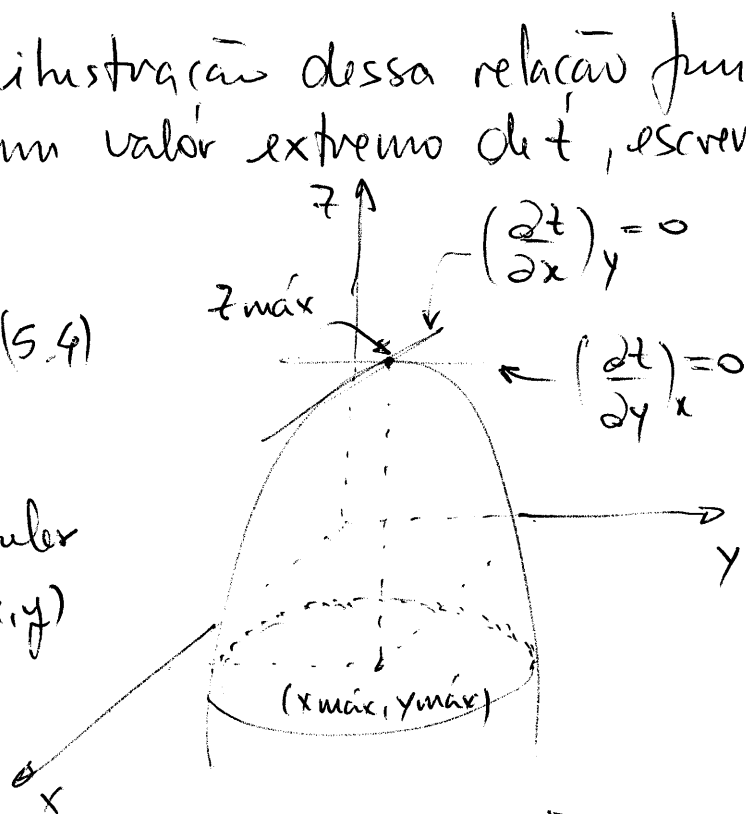 ilustração dessa relação fun
um valor extremo de z, escrev
z
(∂z/∂x)y = 0
zmáx
(5.4)
(∂z/∂y)x = 0
uler
y
,y)
(xmáx, ymáx)
x